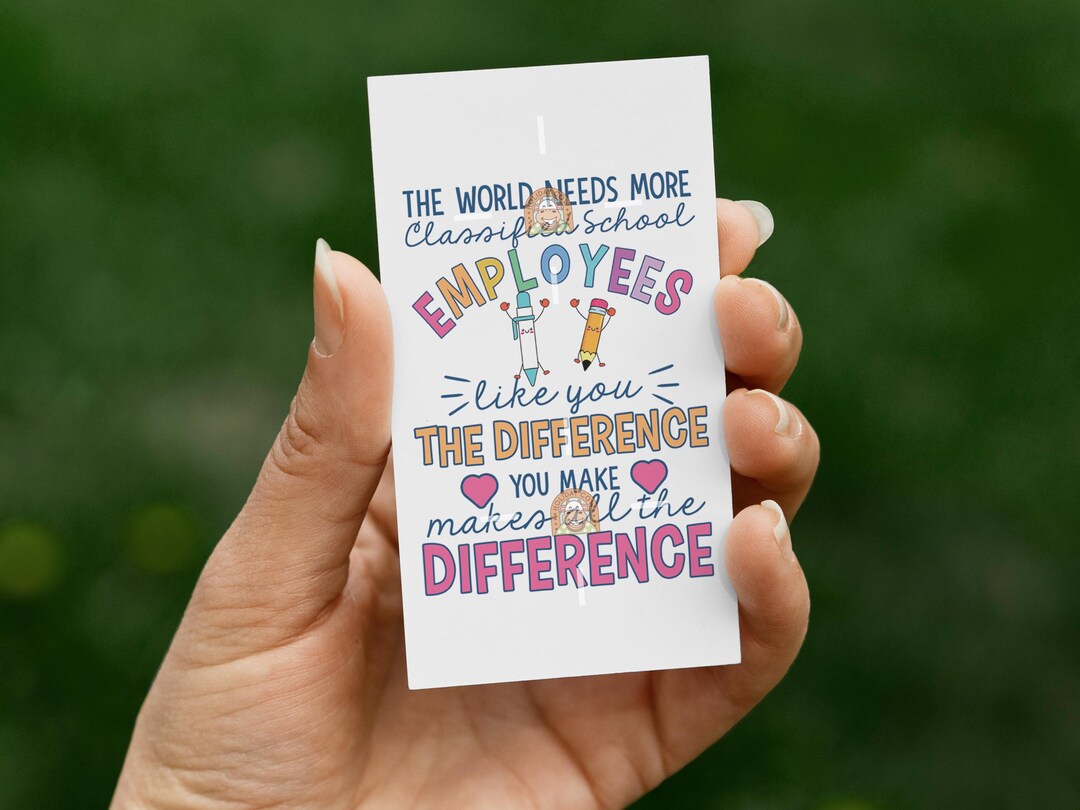 THE WORLD NEEDS MORE
Classified School
EMPLOYEES
like you
THE DIFFERENCE
YOU MAKE
makes all the
DIFFERENCE